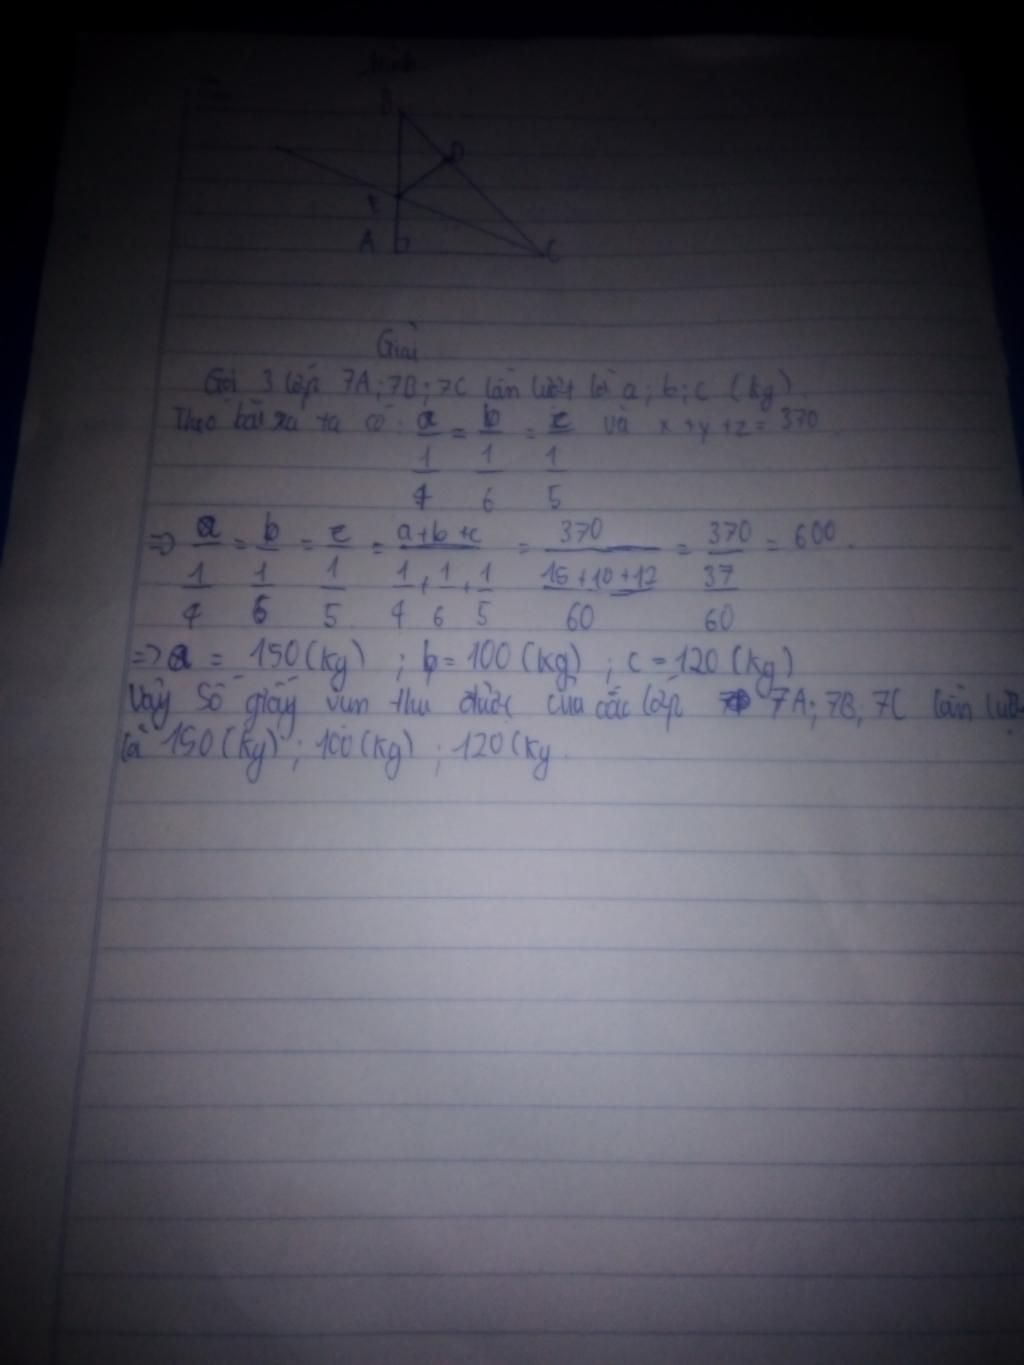 Hình
B
D
E
A
C
Giải
Gọi 3 lớp 7A; 7B; 7C lần lượt là a; b; c (kg).
Theo bài ra ta có: a/(1/4) = b/(1/6) = c/(1/5) và x+y+z = 370
=> a/(1/4) = b/(1/6) = c/(1/5) = (a+b+c)/(1/4+1/6+1/5) = 370/((15+10+12)/60) = 370/(37/60) = 600.
=> a = 150(kg) ; b = 100(kg) ; c = 120(kg)
Vậy số giấy vụn thu được của các lớp 7A; 7B; 7C lần lượt
là 150(kg) ; 100(kg) ; 120(kg.